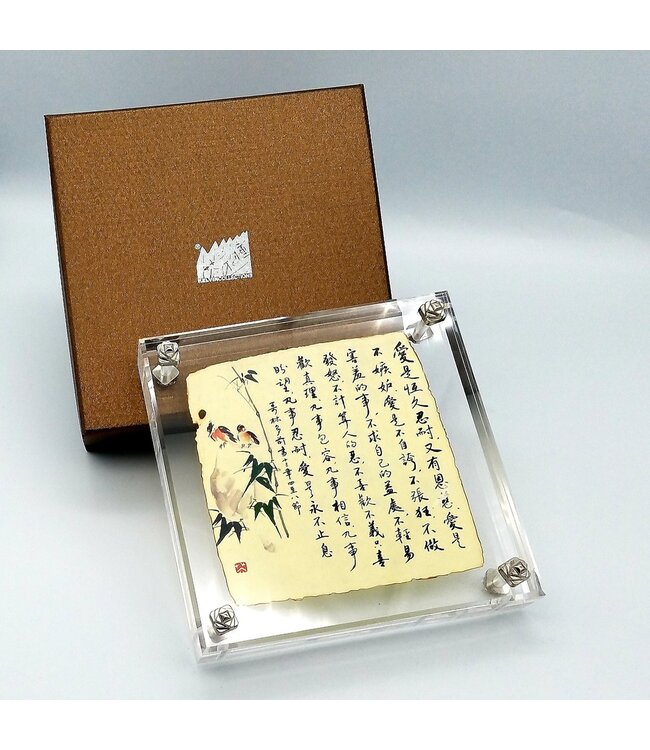 愛是恆久忍耐又有恩慈愛是
不嫉妒愛是不自誇不張狂不做
害羞的事不求自己的益處不輕易
發怒不計算人的惡不喜歡不義只喜
歡真理凡事包容凡事相信凡事
盼望凡事忍耐愛是永不止息
哥林多前書十三章四至八節